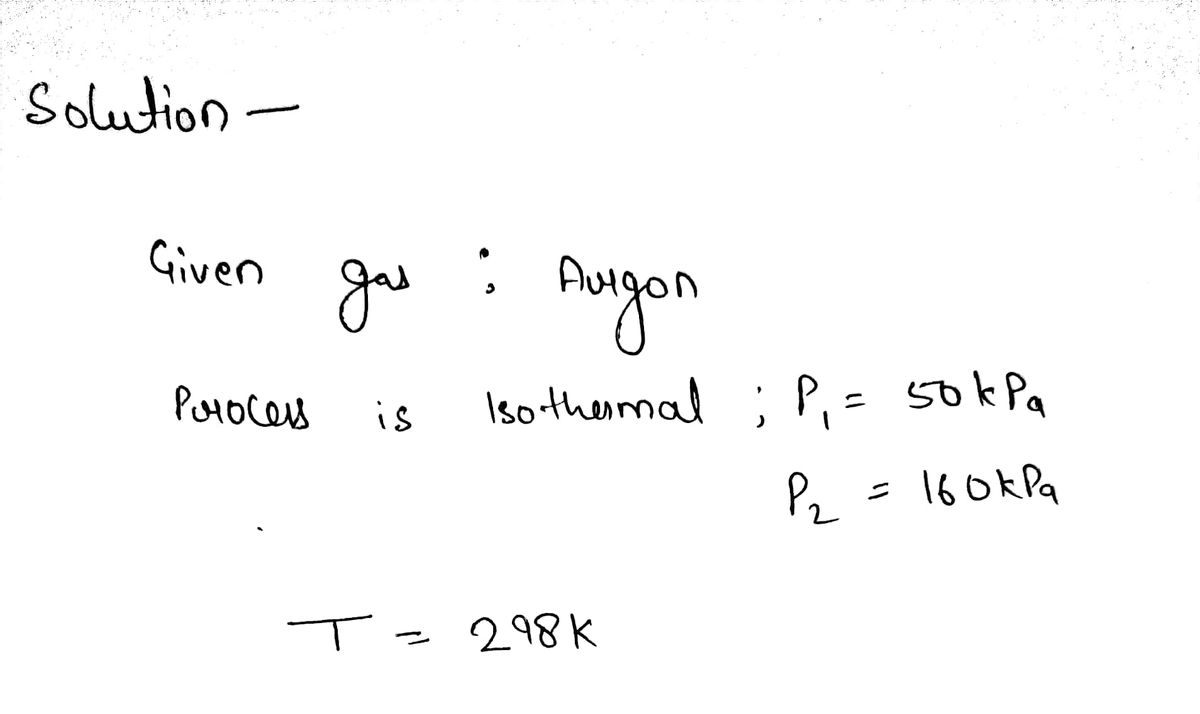 Solution –
Given gas : Argon
Process is Isothermal ; P₁ = 50 kPa
P₂ = 160 kPa
T = 298 K